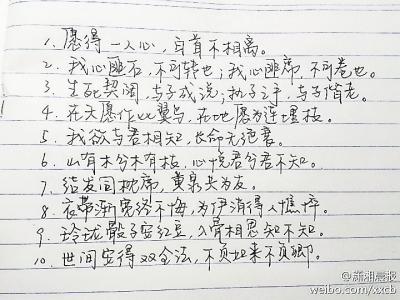 1. 愿得一人心，白首不相离。
2. 我心匪石，不可转也；我心匪席，不可卷也。
3. 生死契阔，与子成说；执子之手，与子偕老。
4. 在天愿作比翼鸟，在地愿为连理枝。
5. 我欲与君相知，长命无绝衰。
6. 山有木兮木有枝，心悦君兮君不知。
7. 结发同枕席，黄泉共为友。
8. 衣带渐宽终不悔，为伊消得人憔悴。
9. 玲珑骰子安红豆，入骨相思知不知。
10. 世间安得双全法，不负如来不负卿。
@潇湘晨报
weibo.com/xxcb